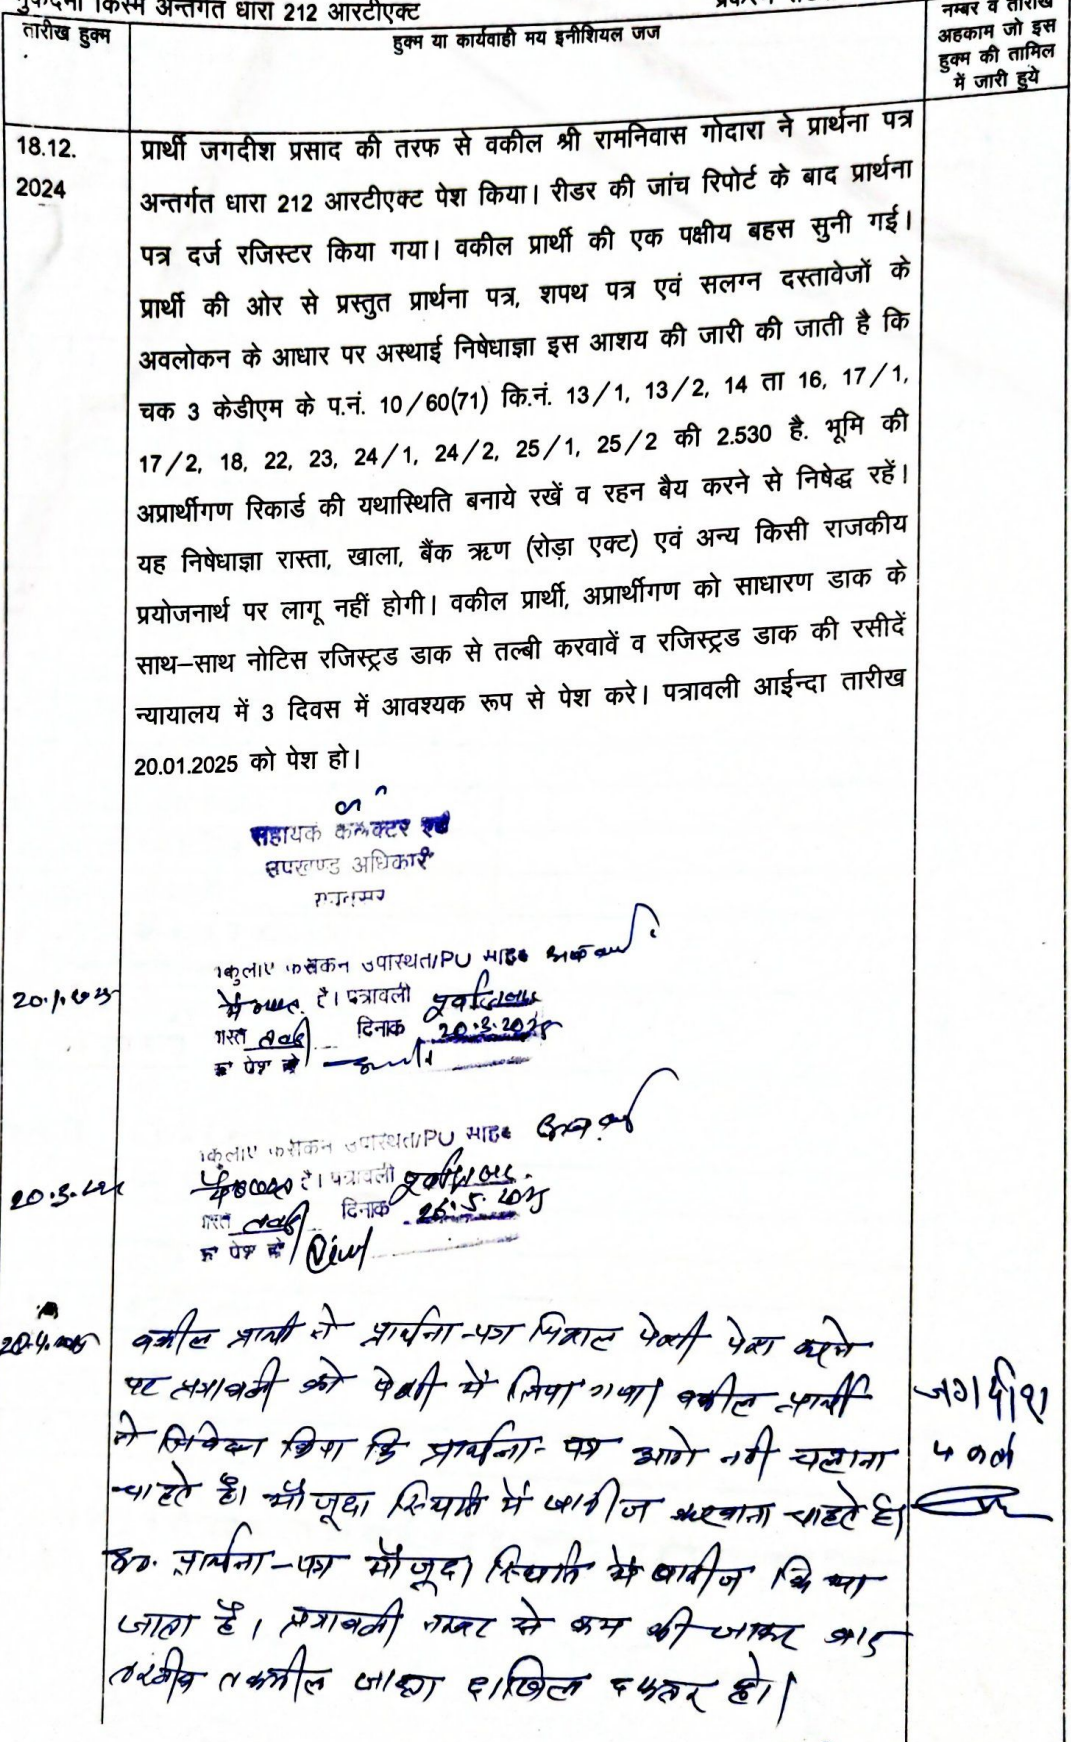 किस्म अन्तर्गत धारा 212 आरटीएक्ट
तारीख हुक्म
हुक्म या कार्यवाही मय इनीशियल जज
नम्बर व तारीख
अहकाम जो इस
हुक्म की तामिल
में जारी हुये
18.12.
2024
प्रार्थी जगदीश प्रसाद की तरफ से वकील श्री रामनिवास गोदारा ने प्रार्थना पत्र
अन्तर्गत धारा 212 आरटीएक्ट पेश किया। रीडर की जांच रिपोर्ट के बाद प्रार्थना
पत्र दर्ज रजिस्टर किया गया। वकील प्रार्थी की एक पक्षीय बहस सुनी गई।
प्रार्थी की ओर से प्रस्तुत प्रार्थना पत्र, शपथ पत्र एवं सलग्न दस्तावेजों के
अवलोकन के आधार पर अस्थाई निषेधाज्ञा इस आशय की जारी की जाती है कि
चक 3 केडीएम के प.नं. 10/60(71) कि.नं. 13/1, 13/2, 14 ता 16, 17/1,
17/2, 18, 22, 23, 24/1, 24/2, 25/1, 25/2 की 2.530 है. भूमि की
अप्रार्थीगण रिकार्ड की यथास्थिति बनाये रखें व रहन बैय करने से निषेद्ध रहें।
यह निषेधाज्ञा रास्ता, खाला, बैंक ऋण (रोड़ा एक्ट) एवं अन्य किसी राजकीय
प्रयोजनार्थ पर लागू नहीं होगी। वकील प्रार्थी, अप्रार्थीगण को साधारण डाक के
साथ–साथ नोटिस रजिस्ट्रड डाक से तल्बी करवावें व रजिस्ट्रड डाक की रसीदें
न्यायालय में 3 दिवस में आवश्यक रूप से पेश करे। पत्रावली आईन्दा तारीख
20.01.2025 को पेश हो।
सहायक कलक्टर एवं
उपखण्ड अधिकारी
उपस्थित/PO साहब
20.1.2025
है। पत्रावली पूर्वानुसार
दिनांक 20.3.2025
पेश हो
उपस्थित/PO साहब
20.3.2025
है। पत्रावली पूर्वानुसार
दिनांक 26.5.2025
पेश हो
वकील प्रार्थी ने प्रार्थना-पत्र मिसल पेशी पेश करने
पर पत्रावली को पेशी में लिया गया। वकील प्रार्थी
ने निवेदन किया कि प्रार्थना-पत्र आगे नही चलाना
चाहते है। मौजूदा स्थिति में खारीज करवाना चाहते है।
अतः प्रार्थना-पत्र मौजूदा स्थिति में खारीज किया
जाता है। पत्रावली नम्बर से कम की जाकर बाद
तकमील जाब्ता दाखिल दफ्तर हो।
जगदीश